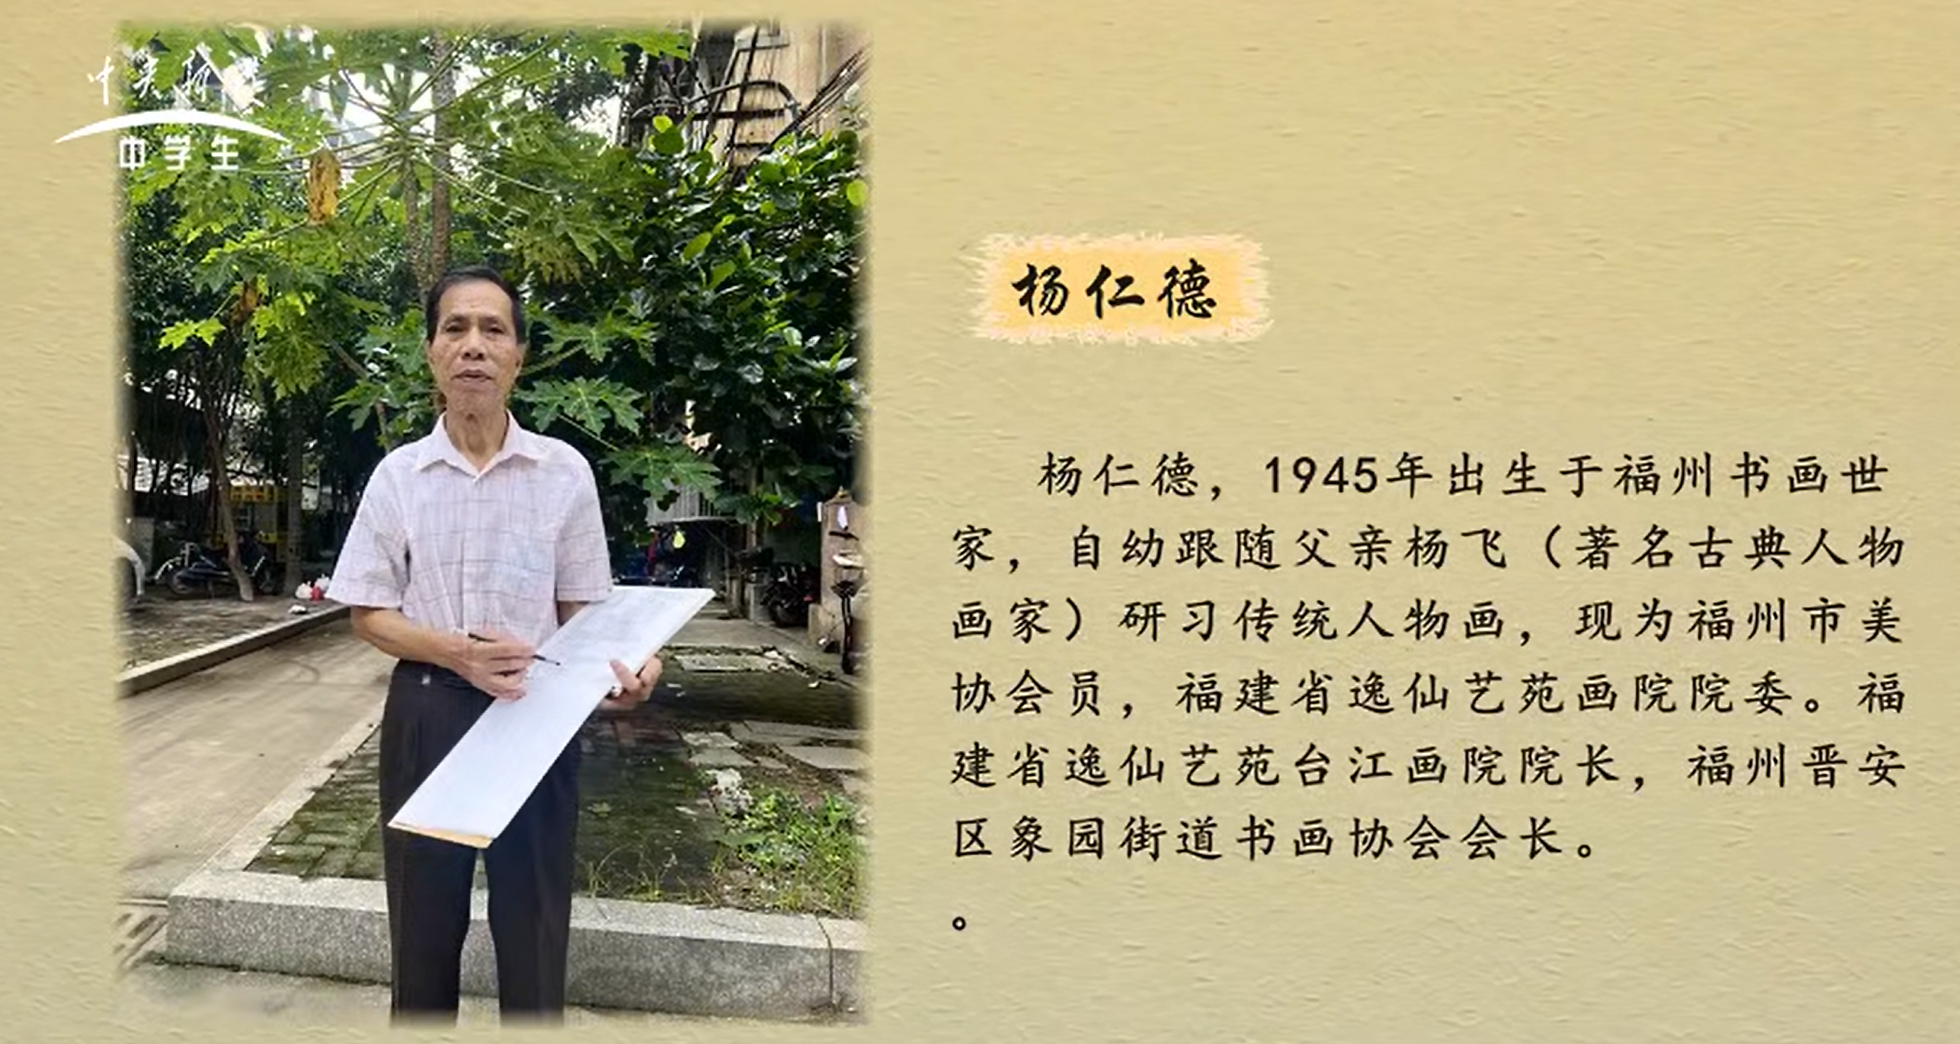 中学生
杨仁德
杨仁德，1945年出生于福州书画世
家，自幼跟随父亲杨飞（著名古典人物
画家）研习传统人物画，现为福州市美
协会员，福建省逸仙艺苑画院院委。福
建省逸仙艺苑台江画院院长，福州晋安
区象园街道书画协会会长。
。